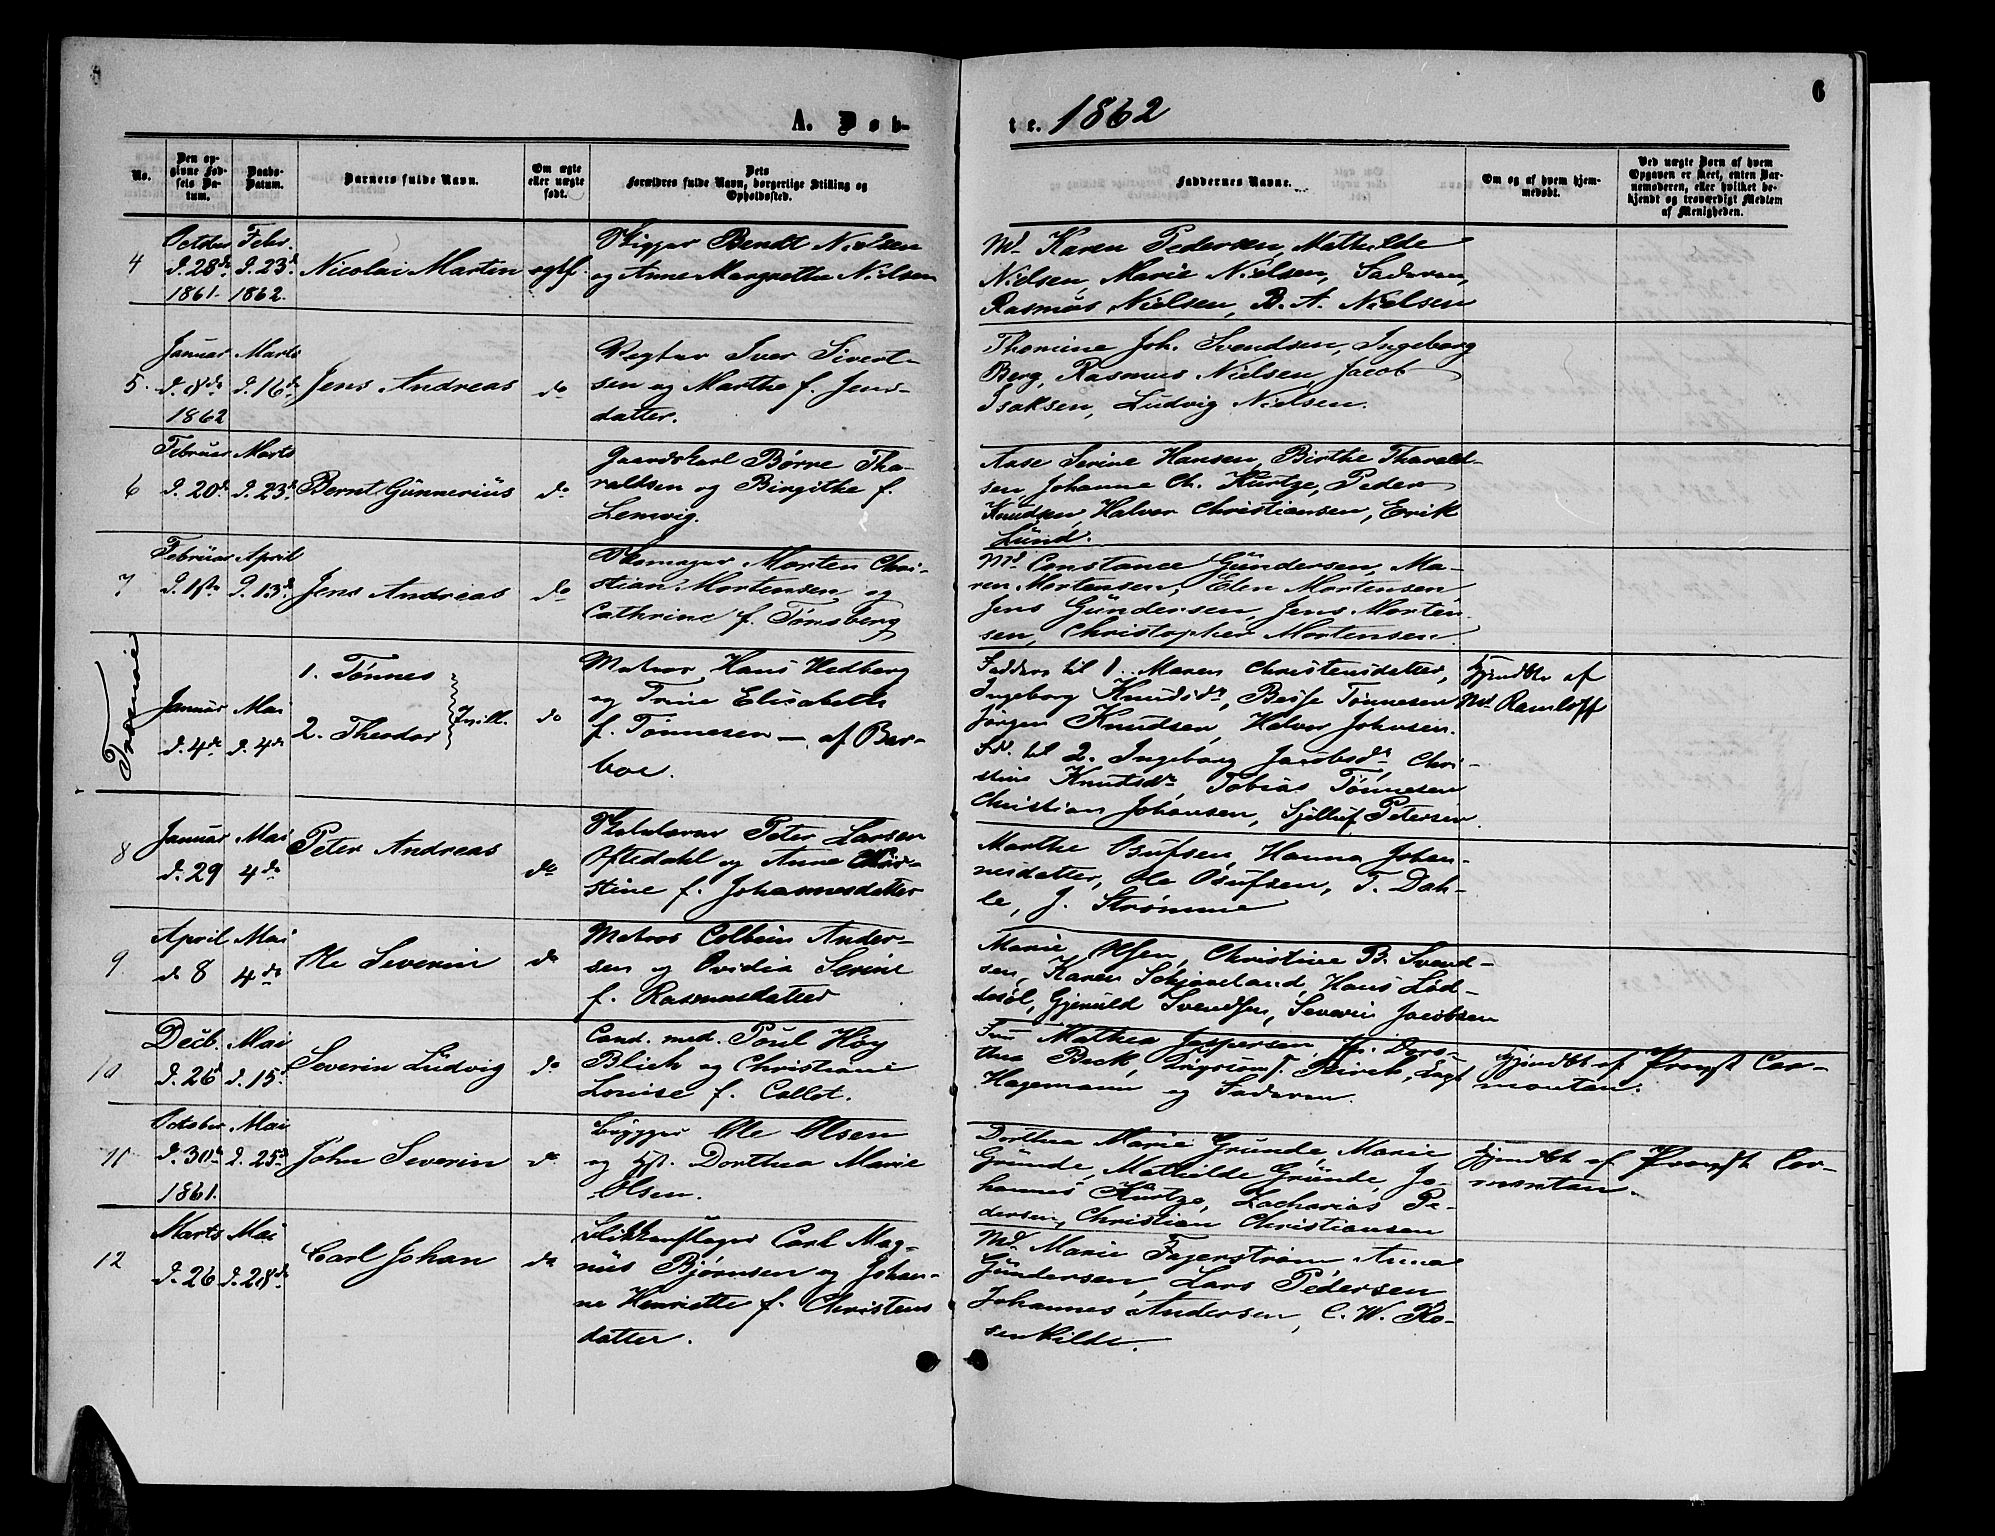 6
A. Døb-
te. 1862
No.
Den op-
givne Fød-
sels Da-
tum.
Daabs-
Datum.
Barnets fulde Navn.
Om ægte
eller uægte
født.
Dets
Forældres fulde Navn, borgerlige Stilling og
Opholdssted.
Faddernes Navne.
Om og af hvem hjem-
medøbt.
Ved uægte Børn af hvem
Opgaven er skeet, enten Bar-
nemoderen, eller hvilket be-
kjendt og troværdigt Medlem
af Menigheden.
4
October
d. 28de
1861.
Febr.
d. 23d
1862.
Nicolai Martin
ægtef.
Skipper Bendt Nielsen
og Anne Margrethe Nielsen
Md. Karen Pedersen, Mathilde
Nielsen, Marie Nielsen, Faderen,
Rasmus Nielsen, B. A. Nielsen
5.
Januar
d. 8de
1862
Marts
d. 16de
Jens Andreas
do
Vegter Iver Sivert-
sen og Marthe f. Jens-
datter.
Thomine Joh. Svendsen, Ingeborg
Berg, Rasmus Nielsen, Jacob
Isaksen, Ludvig Nielsen.
6
Februar
d. 20de
Marts
d. 23d
Bernt Gunnerius
do
Gaardskarl Børre Tha-
raldsen og Birgithe f.
Lemvig.
Aase Serine Hansen, Birthe Tharald-
sen, Johanne Ch. Kurtze, Peder
Knudsen, Halvor Christiansen, Erik
Lund.
7
Februar
d. 1ste
April
d. 13de
Jens Andreas
do
Skomager Morten Chri-
stian Mortensen og
Cathrine f. Tønsberg
Md. Constance Gundersen, Ma-
ren Mortensen, Elen Mortensen
Jens Gundersen, Jens Morten-
sen, Christopher Mortensen.
Tromøe
Januar
d. 4de
Mai
d. 4de
1. Tønnes
2. Theodor
Tvill.
do
Matros Hans Hedberg
og Trine Elisabeth
f. Tønnesen — af Bar-
boe.
Faddere til 1. Maren Christensdatter,
Ingeborg Knudsdr, Besse Tønnesen
Jørgen Knudsen, Halvor Johnsen.
Fd. til 2. Ingeborg Jacobsdr Chri-
stine Knutsdr, Tobias Tønnesen
Christian Johansen, Petersen.
hjemdbt. af
Md. Ramloff
8
Januar
d. 29
Mai
4de
Peter Andreas
do
Skolelærer Peter Larsen
Oftedahl og Anne Chri-
stine f. Johannesdatter
Marthe Osufsen, Hanna Johan-
nesdatter, Ole Osufsen, T. Dah-
le, J. Strømme
9
April
d. 8
Mai
4de
Ole Severin
do
Matros Colbein Ander-
sen og Ovidia Serine
f. Rasmusdatter
Marie Olsen, Christine B. Svend-
sen, Karen Schjøveland, Hans Lød-
desøl, Gjeruld Svendsen, Severin Jacobsen
10
Decb.
d. 26
Mai
d. 15.
Severin Ludvig
do
Cand. med. Poul Høy
Blich og Christiane
Louise f. Collet.
Fru Mathea Jespersen, Fr. Doro-
thea Beck, Birch,
Hagemann og Faderen.
hjemdbt af Provst Cor-
montan.
11
October
d. 30te
1861.
Mai
d. 25d
John Severin
do
Brygger Ole Olsen
og Hst. Dorthea Marie
Olsen.
Dorthea Marie Grunde, Marie
Grunde, Mathilde Grunde, Jo-
hannes Kurtze, Zacharias Pe-
dersen, Christian Christiansen
hjemdbt af Provst Cor-
montan.
12
Marts
d. 26
Mai
d. 28de
Carl Johan
do
Blikkenslager Carl Mag-
nus Bjørnsen og Johan-
ne Henriette f. Christens
datter.
Md. Marie Fagerstrøm, Anna
Gundersen, Lars Pedersen
Johannes Andersen, C. W. Ro-
senkilde.